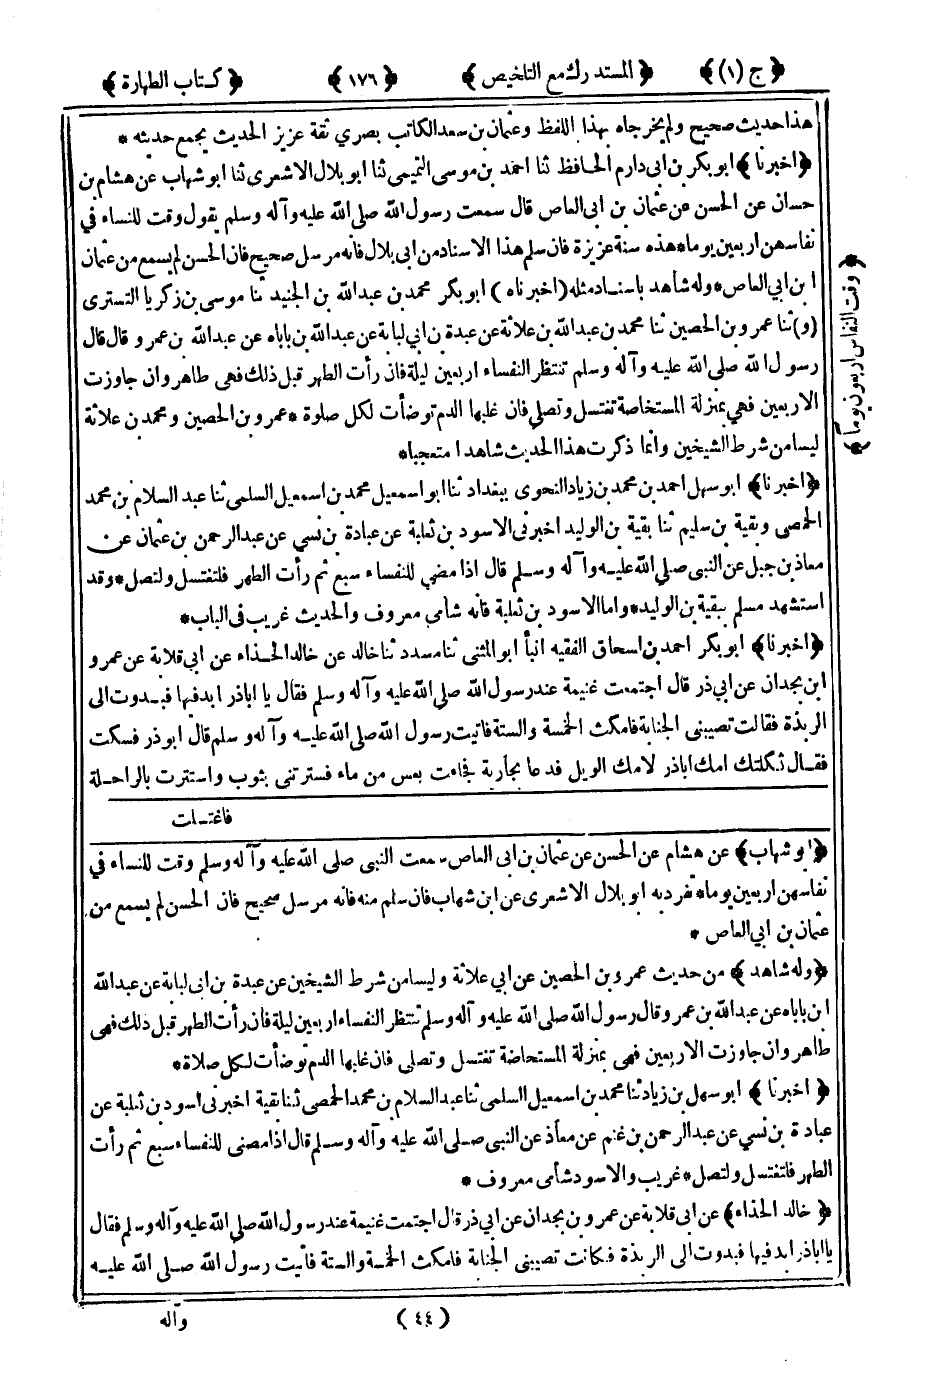 ﴿ ج (١) ﴾ ﴿ المستدرك مع التلخيص ﴾ ﴿ ١٧٦ ﴾ ﴿ كتاب الطهارة ﴾
هذا حديث صحيح ولم يخرجاه بهذا اللفظ وعثمان بن سعد الكاتب بصري ثقة عزيز الحديث يجمع حديثه *
﴿ اخبرنا ﴾ ابو بكر بن ابى دارم الحافظ ثنا احمد بن موسى التميمى ثنا ابو بلال الاشعرى ثنا ابو شهاب عن هشام بن
حسان عن الحسن عن عثمان بن ابى العاص قال سمعت رسول الله صلى الله عليه وآله وسلم يقول وقت للنساء في
نفاسهن اربعين يوما * هذه سنة عزيزة فان سلم هذا الاسناد من ابى بلال فانه مرسل صحيح فان الحسن لم يسمع من عثمان
ابن ابي العاص * وله شاهد باسناد مثله ( اخبرناه ) ابو بكر محمد بن عبد الله بن الجنيد ثنا موسى بن زكريا التسترى
(و) ثنا عمرو بن الحصين ثنا محمد بن عبد الله بن علاثة عن عبدة بن ابي لبابة عن عبد الله بن باباه عن عبد الله بن عمرو قال قال
رسول الله صلى الله عليه وآله وسلم تنتظر النفساء اربعين ليلة فان رأت الطهر قبل ذلك فهى طاهر وان جاوزت
الاربعين فهي بمنزلة المستحاضة تغتسل وتصلي فان غلبها الدم توضأت لكل صلوة * عمرو بن الحصين ومحمد بن علاثة
ليسا من شرط الشيخين وانما ذكرت هذا الحديث شاهدا متعجبا *
﴿ اخبرنا ﴾ ابو سهل احمد بن محمد بن زياد النحوى ببغداد ثنا ابو اسمعيل محمد بن اسمعيل السلمى ثنا عبد السلام بن محمد
الحمصى وبقية بن سليم ثنا بقية بن الوليد اخبرنى الاسود بن ثعلبة عن عبادة بن نسي عن عبد الرحمن بن عثمان عن
معاذ بن جبل عن النبى صلى الله عليه وآله وسلم قال اذا مضي للنفساء سبع ثم رأت الطهر فلتغتسل ولتصل * وقد
استشهد مسلم ببقية بن الوليد * واما الاسود بن ثعلبة فانه شامي معروف والحديث غريب فى الباب *
﴿ اخبرنا ﴾ ابو بكر احمد بن اسحاق الفقيه انبأ ابو المثنى ثنا مسدد ثنا خالد عن خالد الحذاء عن ابي قلابة عن عمرو
ابن بجدان عن ابي ذر قال اجتمعت غنيمة عند رسول الله صلى الله عليه وآله وسلم فقال يا اباذر ابد فيها فبدوت الى
الربذة فقالت تصيبنى الجنابة فامكث الخمسة والستة فاتيت رسول الله صلى الله عليه وآله وسلم قال ابو ذر فسكت
فقال ثكلتك امك اباذر لامك الويل فدعا بجارية فجاءت بعس من ماء فسترتنى بثوب واستترت بالراحلة
فاغتسلت
﴿ ابو شهاب ﴾ عن هشام عن الحسن عن عثمان بن ابى العاص سمعت النبى صلى الله عليه وآله وسلم وقت للنساء في
نفاسهن اربعين يوما * تفرد به ابو بلال الاشعرى عن ابن شهاب فان سلم منه فانه مرسل صحيح فان الحسن لم يسمع من
عثمان بن ابي العاص *
﴿ وله شاهد ﴾ من حديث عمرو بن الحصين عن ابي علاثة وليسا من شرط الشيخين عن عبدة بن ابى لبابة عن عبد الله
ابن باباه عن عبد الله بن عمرو قال رسول الله صلى الله عليه وآله وسلم تنتظر النفساء اربعين ليلة فان رأت الطهر قبل ذلك فهى
طاهر وان جاوزت الاربعين فهى بمنزلة المستحاضة تغتسل وتصلى فان غلبها الدم توضأت لكل صلاة *
﴿ اخبرنا ﴾ ابو سهل بن زياد ثنا محمد بن اسمعيل السلمى ثنا عبد السلام بن محمد الحمصى ثنا بقية اخبرنى اسود بن ثعلبة عن
عبادة بن نسي عن عبد الرحمن بن غنم عن معاذ عن النبى صلى الله عليه وآله وسلم قال اذا مضى للنفساء سبع ثم رأت
الطهر فلتغتسل ولتصل * غريب والاسود شامى معروف *
﴿ خالد الحذاء ﴾ عن ابى قلابة عن عمرو بن بجدان عن ابي ذر قال اجتمعت غنيمة عند رسول الله صلى الله عليه وآله وسلم فقال
يا اباذر ابد فيها فبدوت الى الربذة فكانت تصيبنى الجنابة فامكث الخمسة والستة فأتيت رسول الله صلى الله عليه
﴿ وقت النفاس اربعون يوماً ﴾
(٤٤) وآله